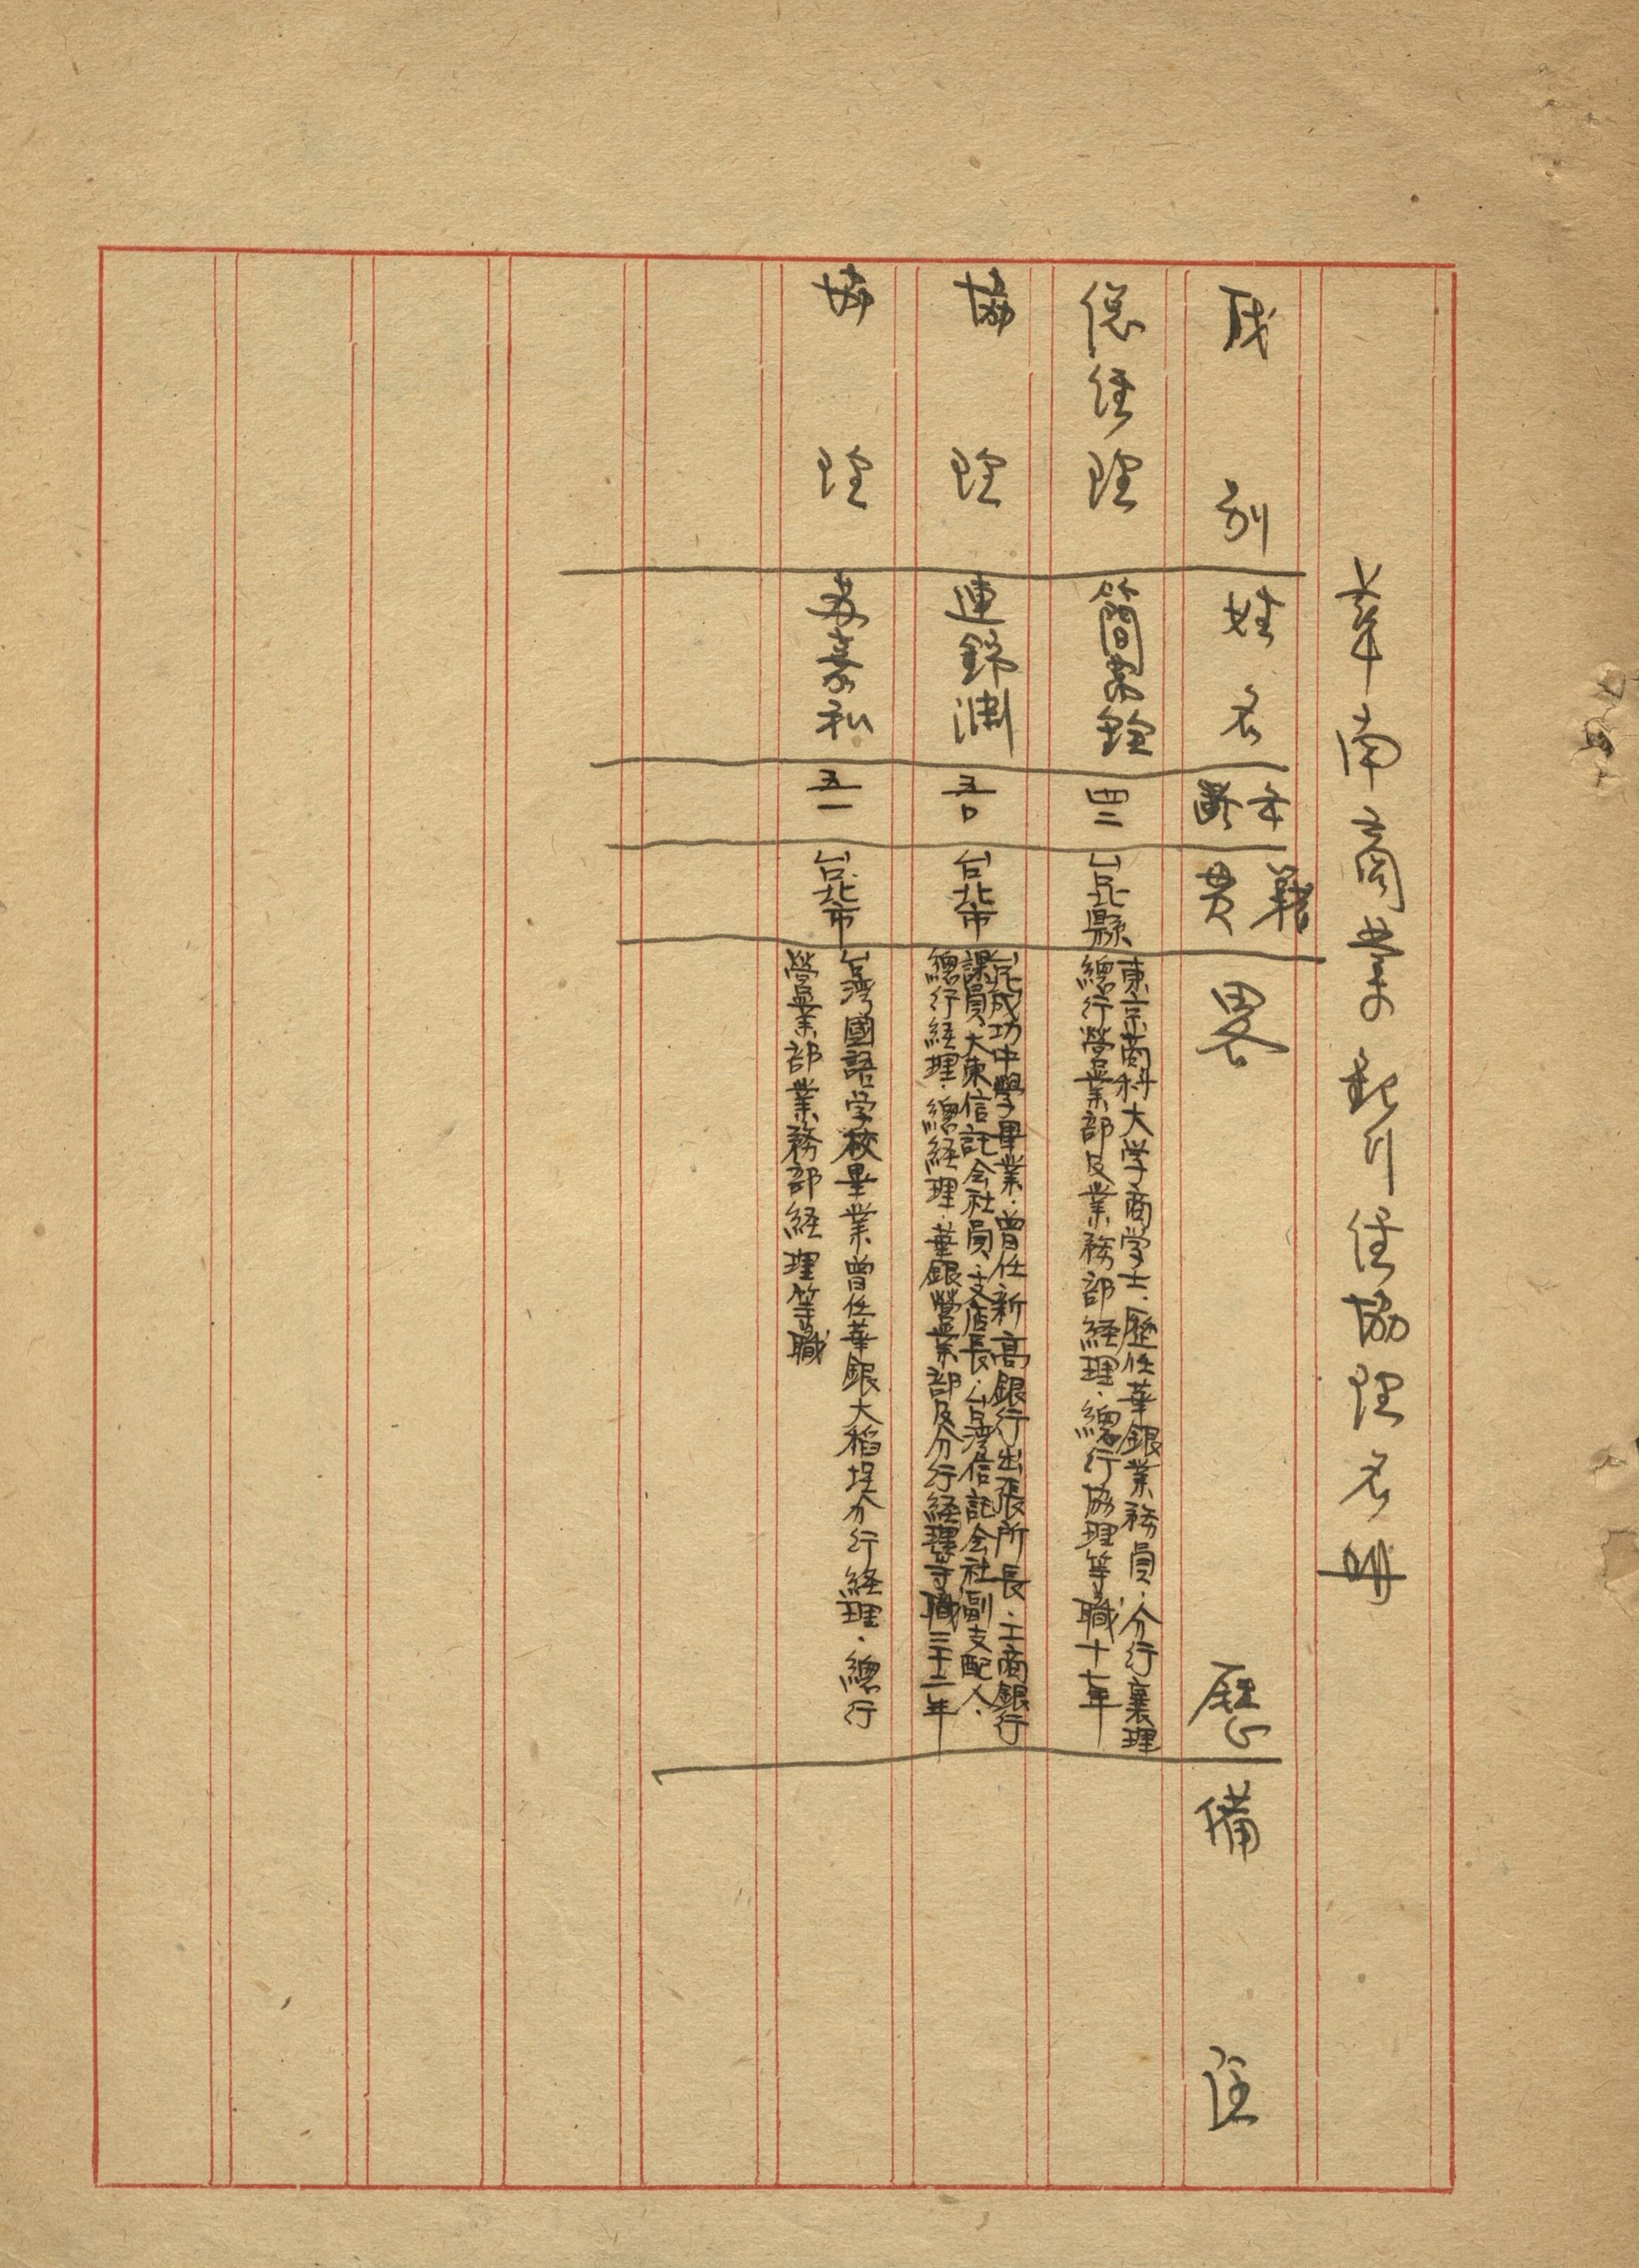 華南商業銀行經協理名冊
職別 姓名 年齡 籍貫 畧歷 備註
總經理 簡荣鐘 四三 台北縣 東京商科大学商学士．歷任華銀業務員．分行襄理
總行營業部及業務部経理．總行協理等職十七年
協理 連錦淵 五〇 台北市 台北成功中學畢業．曾任新高銀行出張所長．工商銀行
課員．大東信託会社員．支店長．台湾信託会社副支配人．
總行経理．總経理．華銀營業部及分行経理等職三十二年
協理 嘉私 五一 台北市 台湾國語学校畢業曾任華銀大稻埕分行経理．總行
營業部業務部経理等職